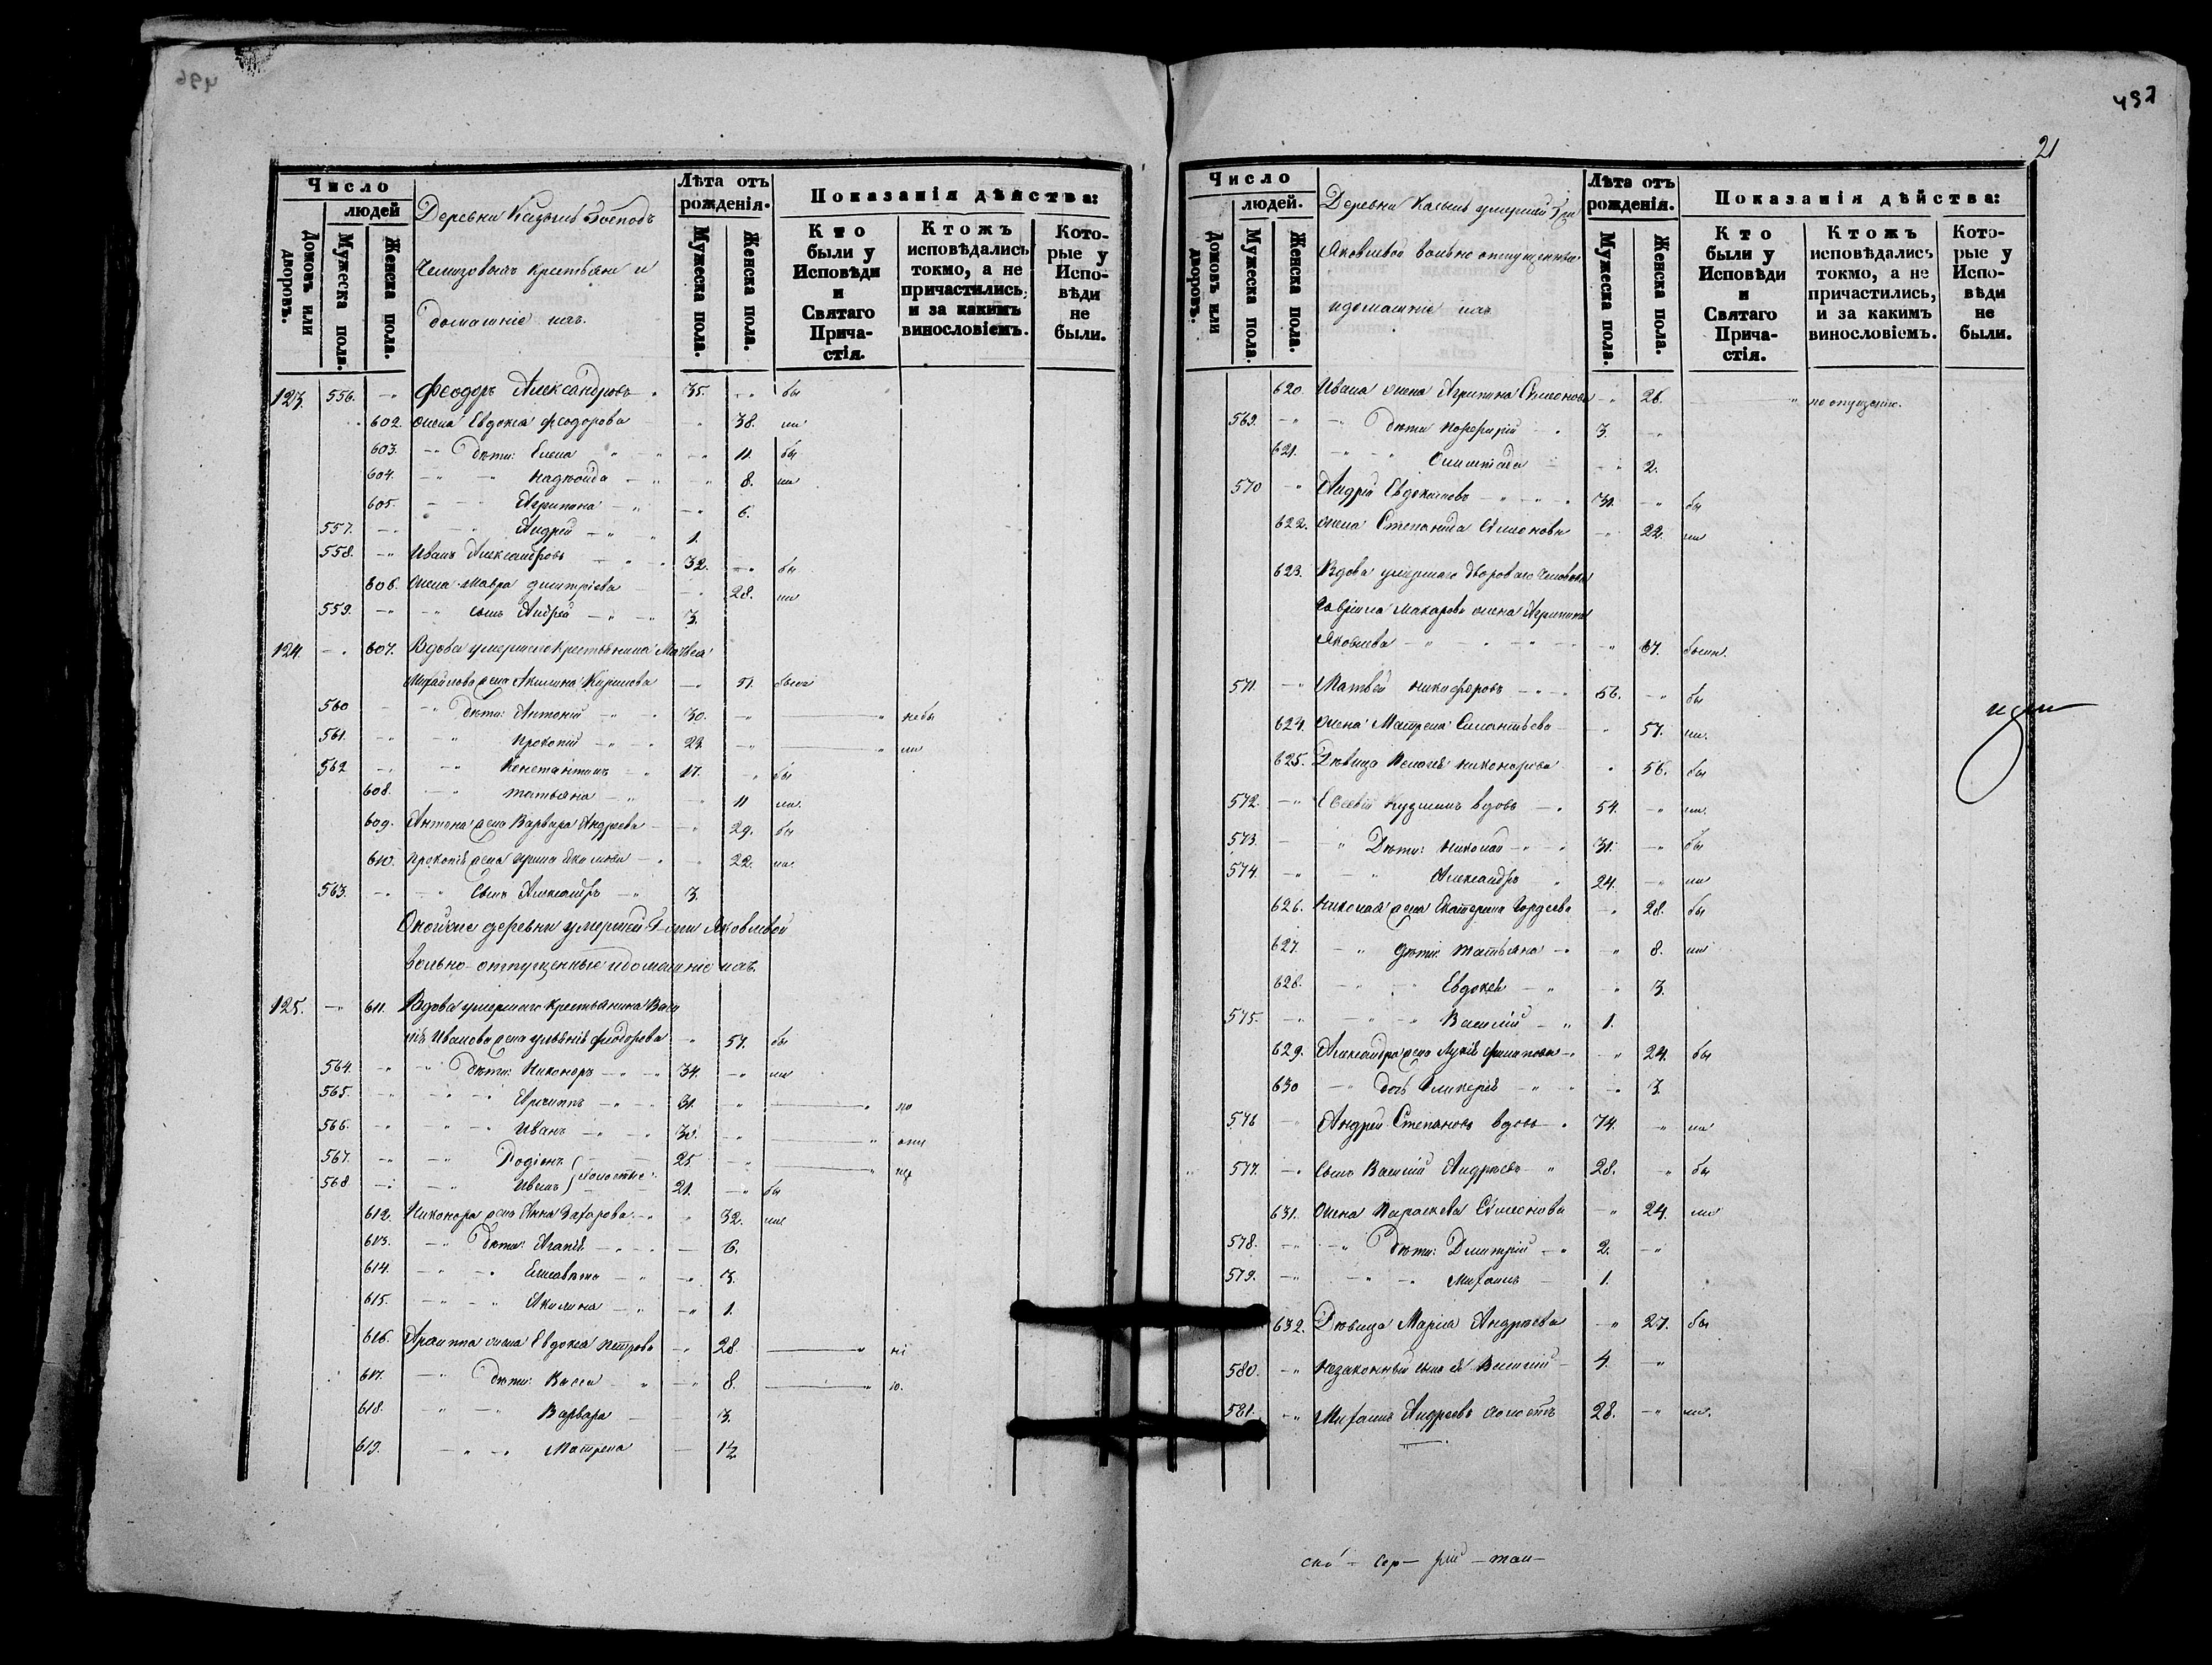 496
Число
людей
Домовъ или дворовъ.
Мужеска пола.
Женска пола.
Деревни Господъ
крестьяне и
домашніе ихъ.
Лѣта отъ рожденія.
Мужеска пола.
Женска пола.
Показанія дѣйства:
Кто были у Исповѣди и Святаго Причастія.
Ктожъ исповѣдались токмо, а не причастились, и за какимъ винословіемъ.
Которые у Исповѣди не были.
123. 556. Феодоръ Александровъ 35. бы
602. жена Евдокія Феодорова 38. ли
603. дѣти: Елена 11. бы
604. 8. ли
605. Агрипина 6.
557. Андрей 1.
558. Иванъ Александровъ 32. бы
606. жена Мавра Димтріева 28. ли
559. сынъ Андрей 3.
124. 607. Вдова умершаго крестьянина Матвея
Михайлова жена Акилина Кирилова 51. была
560 дѣти: Антоній 30. небы
561. Прокопій 23. ли
562 Константинъ 17. бы
608. Татьяна 11 ли.
609. Антона жена Варвара Андреева 29. бы
610. Прокопія жена Ирина 22. ли.
563. сынъ Александръ 3.
деревни умершей Яковлевой
вольно-отпущенные и домашніе ихъ.
125. 611. Вдова умершаго крестьянина Васи
лія Иванова жена Феодорова 57. бы
564. дѣти: Никоноръ 34. ли
565. 31. по
566. Иванъ 30. опу
567. Родіонъ холостые 25. ще
568 Иванъ 21. бы
612. Никонора жена Анна Захарова 32. ли
613. дѣти: Агапія 6.
614. Елисавета 3.
615. Акилина 1.
616. жена Евдокія Петрова 28. ні
617. дѣти: Васса 8. ю.
618. Варвара 3.
619. Матрена 1½
497
21
Число
людей.
Домовъ или дворовъ.
Мужеска пола.
Женска пола.
Деревни умершей
Яковлевой вольно отпущенные
и домашніе ихъ
Лѣта отъ рожденія.
Мужеска пола.
Женска пола.
Показанія дѣйства:
Кто были у Исповѣди и Святаго Причастія.
Ктожъ исповѣдались токмо, а не причастились, и за какимъ винословіемъ.
Которые у Исповѣди не были.
620. Ивана жена Агрипина Симонова 26. по опущенію.
569. дѣти Порфирій 3.
621. 2.
570 Андрей Евдокимовъ 30. бы
622. жена Степанида Симонова 22. ли
623. Вдова умершаго двороваго человека
Гавріила Макарова жена Агрипина
Яковлева 67. были.
571. Матвей Никифоровъ 56. бы
624. жена Матрена 57. ли.
625. Дѣвица Пелагія Никонорова 56. бы
572. Евсевій Кузминъ вдовъ 54. ли.
573. Дѣти: Николай 31. бы
574. Александръ 24. ли
626. Николая жена Екатерина Гордеева 28. бы
627. дѣти: Татьяна 8. ли
628. Евдокія 3.
575. Василій 1.
629. Александра жена Филипова 24. бы
630 дочь Гликерія 3.
576 Андрей Степановъ вдовъ 74. ли
577. сынъ Василій Андреевъ 28. бы
631. жена Параскева Симонова 24. ли
578. дѣти: Дмитрій 2.
579. Михаилъ 1.
632. Дѣвица Марія Андреева 27. бы
580. Незаконный сынъ ея Василій 4.
581. Михаилъ Андреевъ холостъ 28. ли.